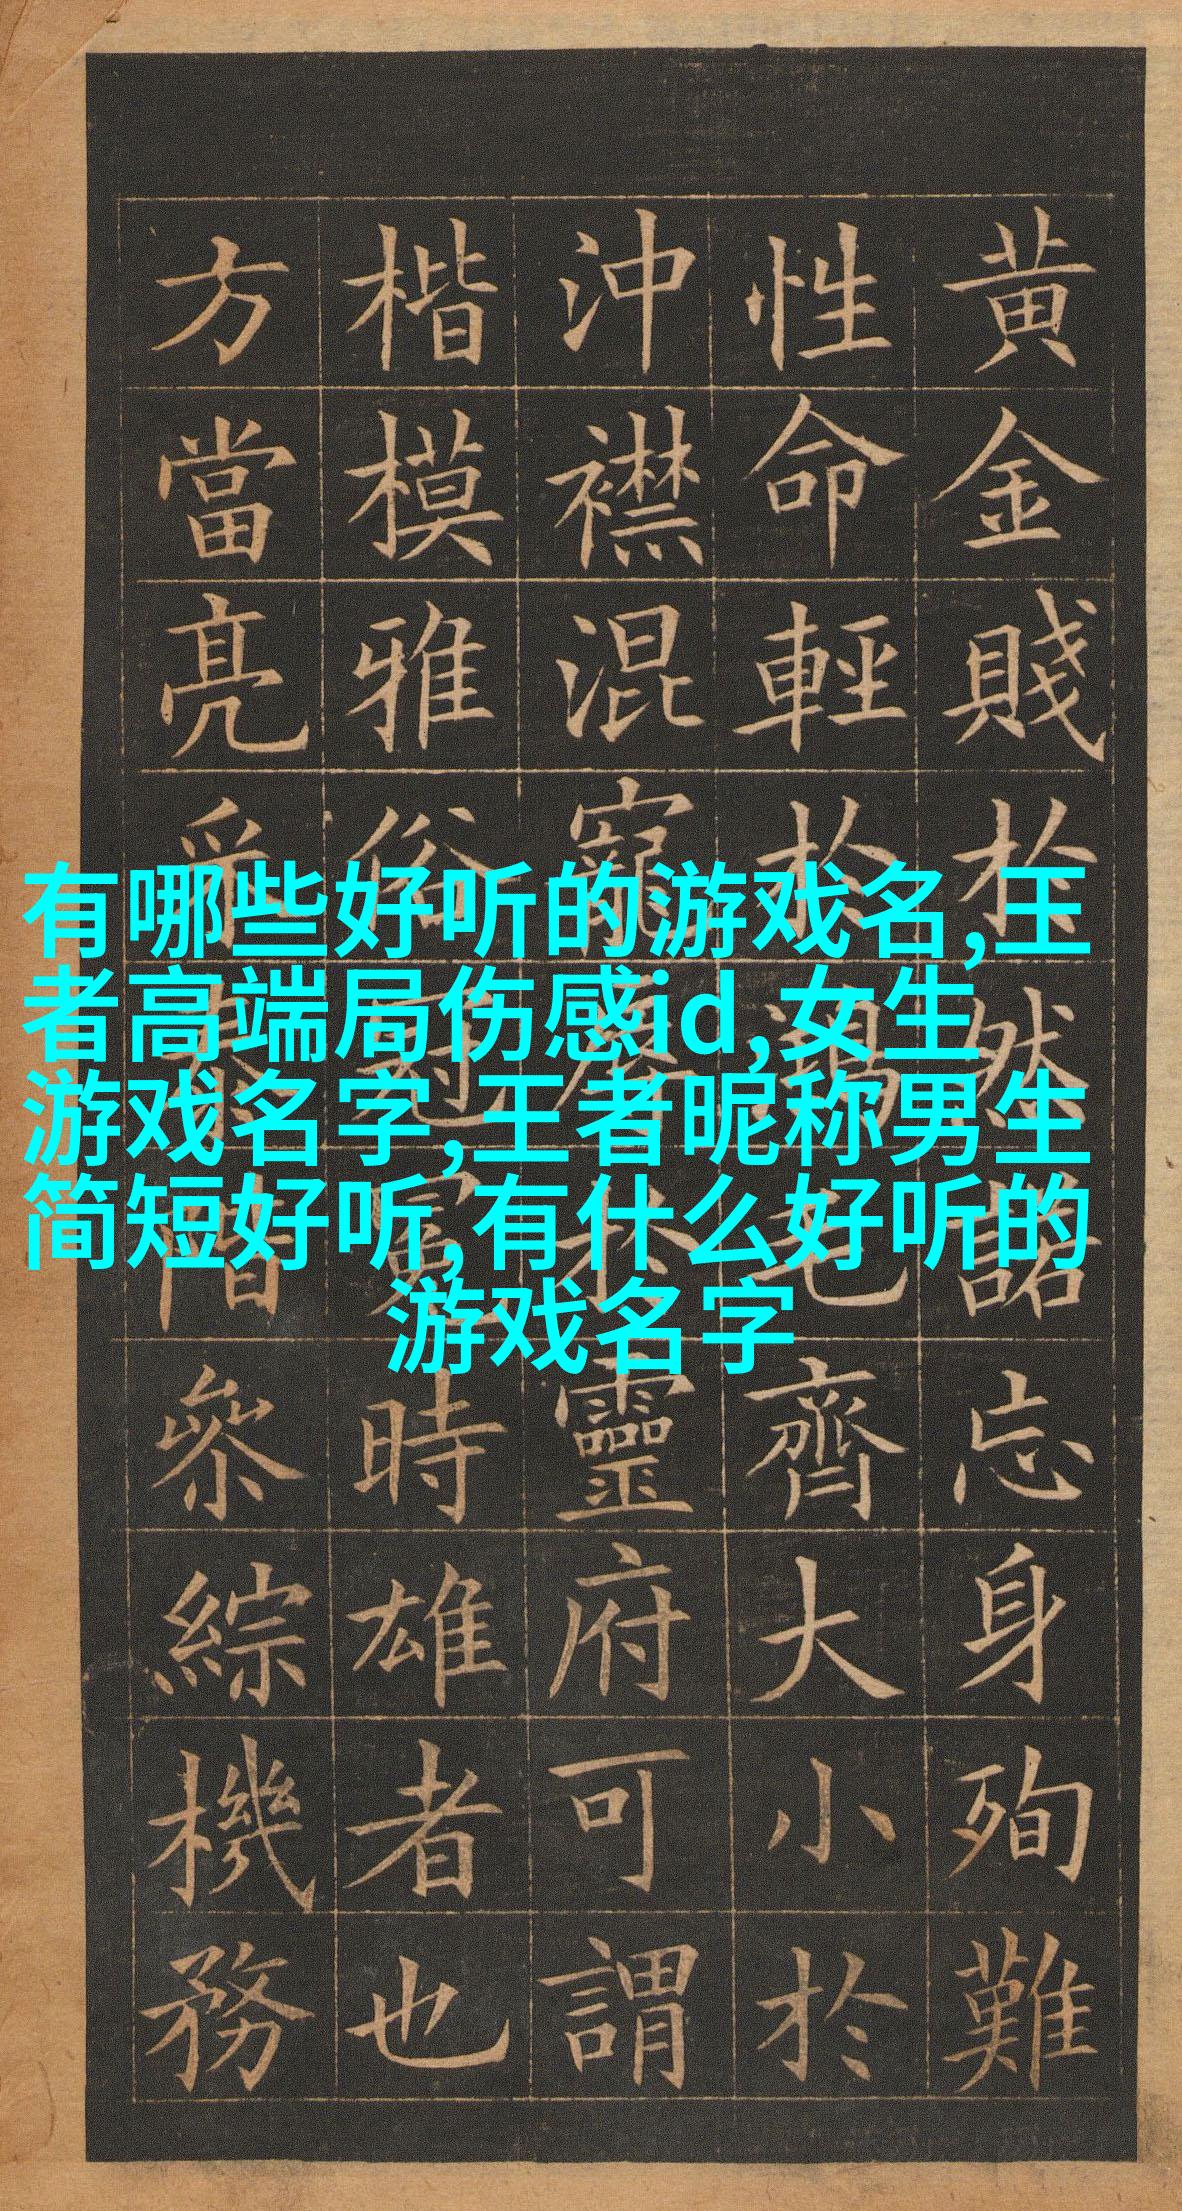 黄金賤扵然諾忘身殉難
性命輕扵鴻毛齊大小於
沖襟混寵辱扵靈府可謂
楷模雅俗冠冕時雄者也
方當亮采泰階參綜機務
有哪些好听的游戏名,王
者高端局伤感id,女生
游戏名字,王者昵称男生
简短好听,有什么好听的
游戏名字